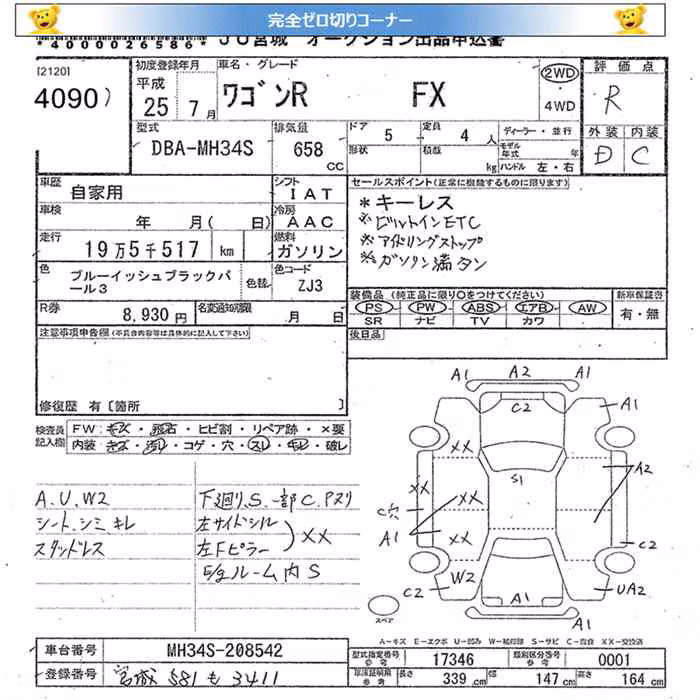 完全ゼロ切りコーナー
*4000026586* JU宮城 オークション出品申込書
[2120]
4090)
初度登録年月 平成 25 7月
車名・グレード ワゴンR FX
2WD
4WD
評価点
R
型式 DBA-MH34S
排気量 658 CC
ドア 5
定員 4 人
形状
積載 kg
ディーラー・並行
モデル年式 年
ハンドル 左・右
外装 内装
D C
車歴 自家用
シフト IAT
車検 年 月( 日)
冷房 AAC
走行 19万5千517 km
燃料 ガソリン
色 ブルーイッシュブラックパール3
色替
色コード ZJ3
R券 8,930円
名変通知期限 月 日
セールスポイント(正常に機能するものに限ります)
*キーレス
※ビルトインETC
※アイドリングストップ
※ガソリン満タン
装備品(純正品に限り○をつけてください)
PS PW ABS エアB AW
SR ナビ TV カワ
新車保証書
有・無
後日品
注意事項申告欄(不具合内容等は具体的に記入して下さい)
修復歴 有[箇所 ]
検査員記入欄
FW:キズ・飛石・ヒビ割・リペア跡・×要
内装:キズ・汚レ・コゲ・穴・スレ・キレ・破レ
A.U.W2
シート.シミ キレ
スタッドレス
下廻り.S.一部C.Pヌリ
左サイドシル
左Fピラー
XX
E/gルーム内S
A1 A2 A1
C2
A1 A1
XX
S1
XX
XX
A2
C穴
A1
XX
C2
W2
C2
UA2
A1
A1 A1
スペア
A-キズ E-エクボ U-凹み W-補修跡 S-サビ C-腐食 XX-交換済
車台番号 MH34S-208542
登録番号 宮城 581 も 3411
型式指定番号 参考 17346
類別区分番号 参考 0001
車検証明記 参考 長さ 339 cm 幅 147 cm 高さ 164 cm